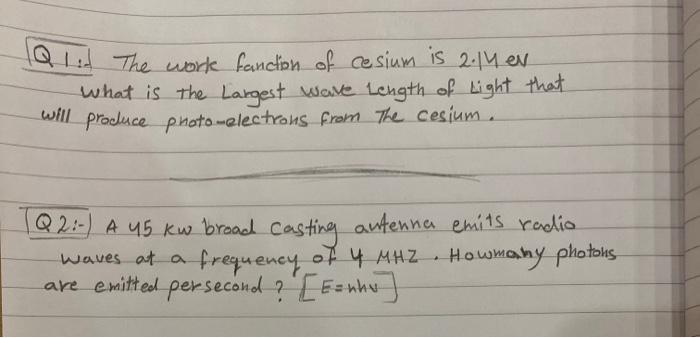 Q1:- The work fanction of cesium is 2.14 ev
What is the Largest wave Length of Light that
will produce photo-electrons from The cesium.
Q2:- A 45 kw broad casting antenna emits radio
waves at a frequency of 4 MHZ. Howmany photons
are emitted persecond? [E=nhν]